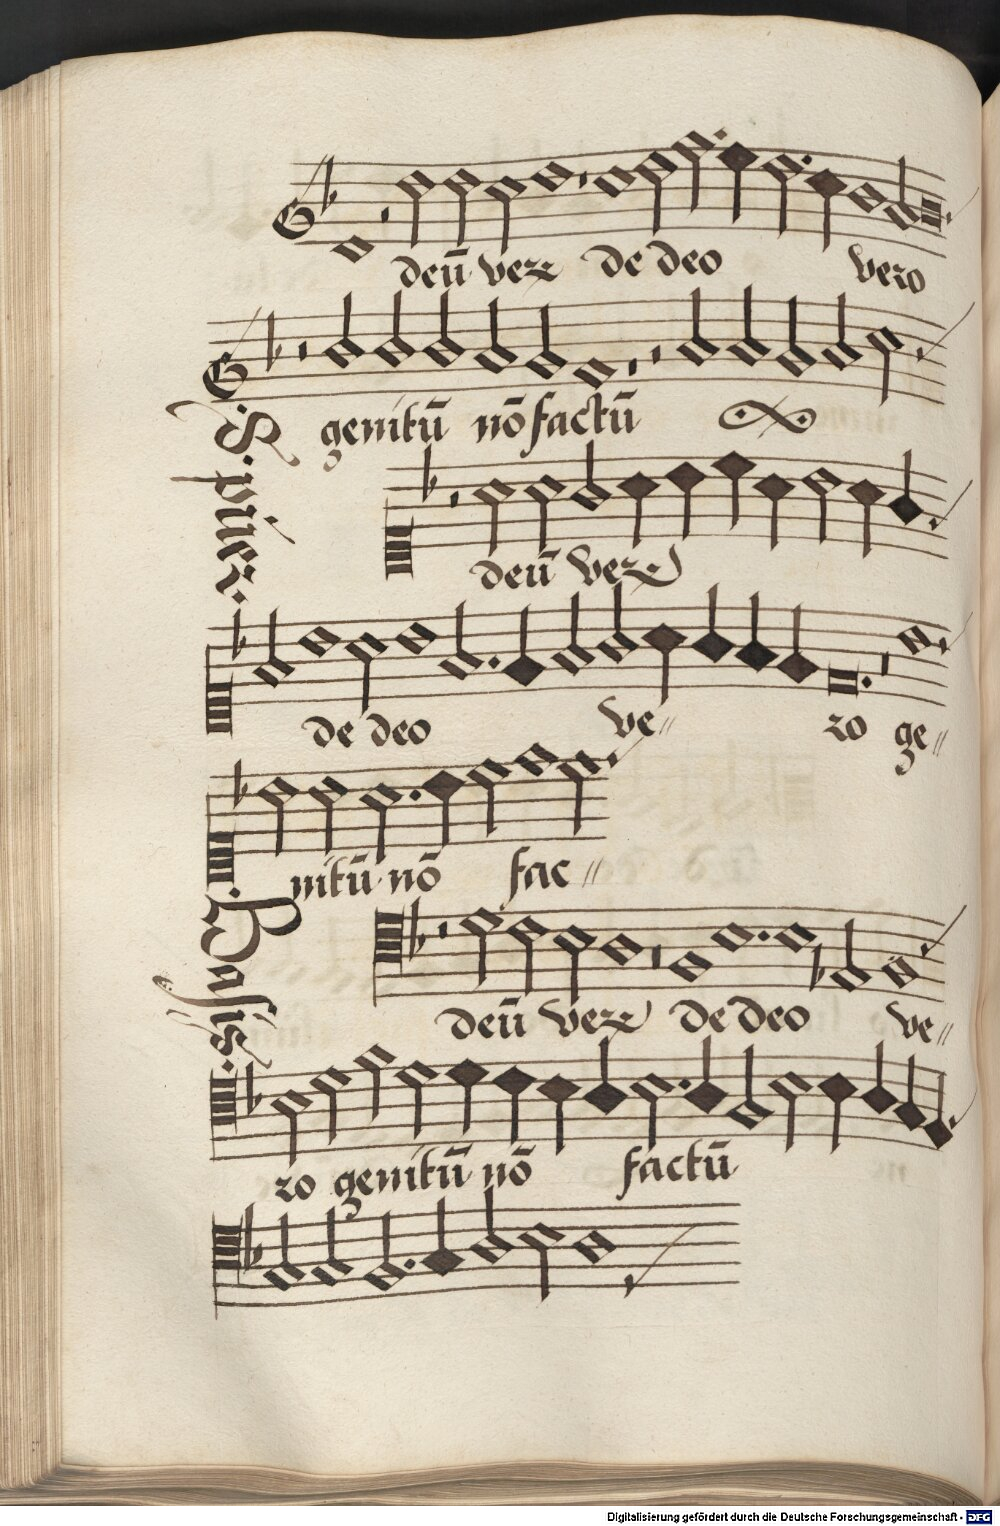 deū vere de deo vero
genitū nō factū
deū vere
de deo ve〃 ro ge〃
nitū nō fac〃
Basis
deū vere de deo ve〃
ro genitū nō factū
Digitalisierung gefördert durch die Deutsche Forschungsgemeinschaft - DFG